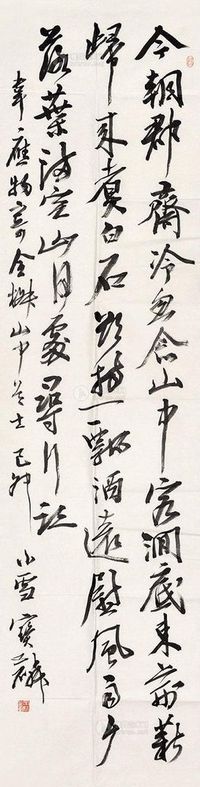 今朝郡齋冷忽念山中客澗底束荊薪
歸來煮白石欲持一瓢酒遠慰風雨夕
落葉滿空山何處尋行迹
韋應物寄全椒山中道士 己卯小雪寶麟